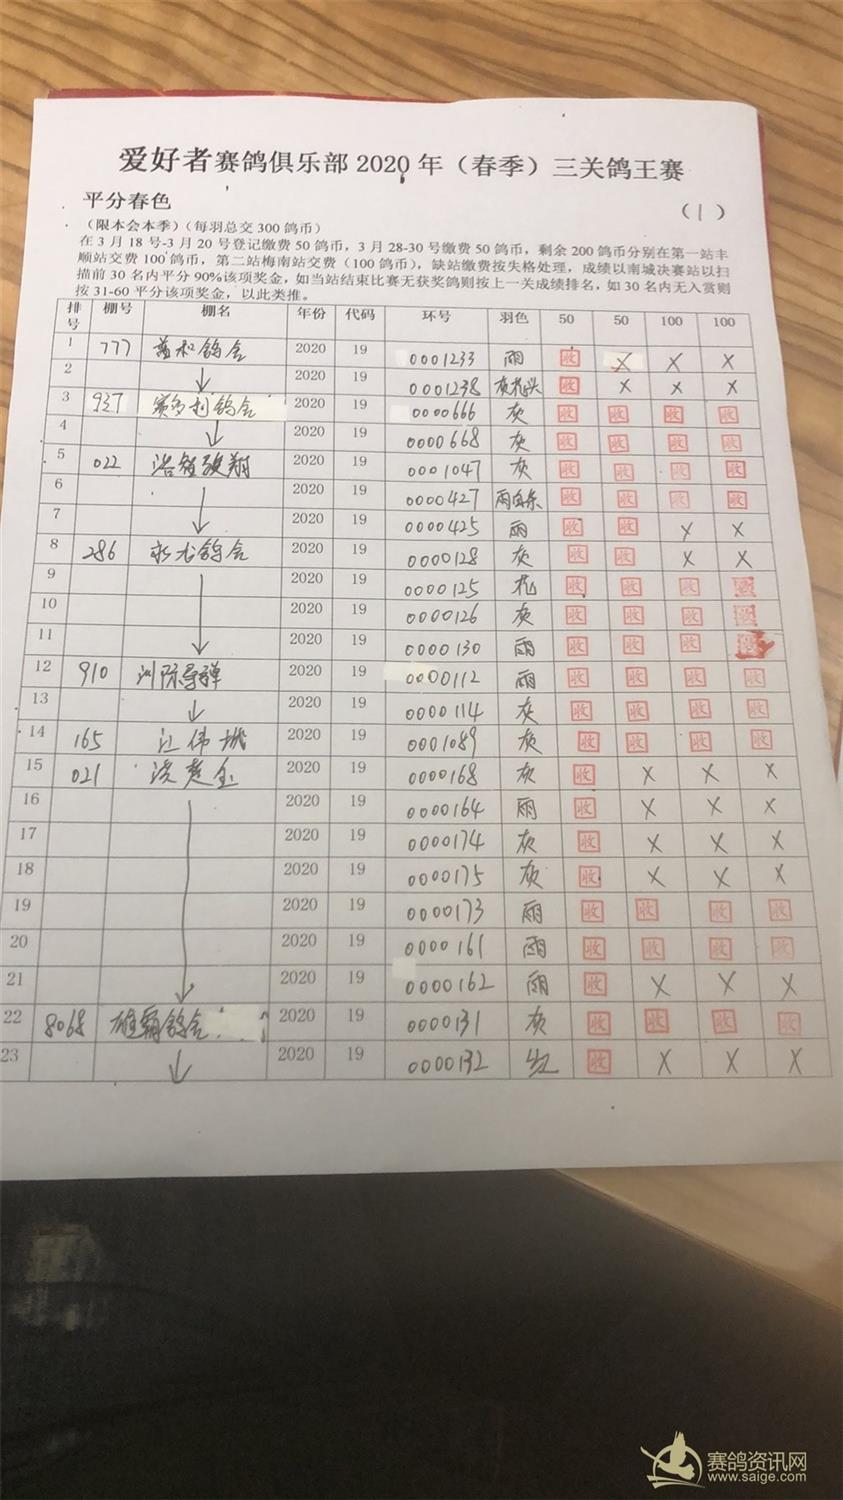 爱好者赛鸽俱乐部 2020 年（春季）三关鸽王赛
平分春色
（1）
（限本会本季）（每羽总交 300 鸽币）
在 3 月 18 号-3 月 20 号登记缴费 50 鸽币，3 月 28-30 号缴费 50 鸽币，剩余 200 鸽币分别在第一站丰
顺站交费 100 鸽币，第二站梅南站交费（100 鸽币），缺站缴费按失格处理，成绩以南城决赛站以扫
描前 30 名内平分 90%该项奖金，如当站结束比赛无获奖鸽则按上一关成绩排名，如 30 名内无入赏则
按 31-60 平分该项奖金，以此类推。
排号 棚号 棚名 年份 代码 环号 羽色 50 50 100 100
1 777 鸽舍 2020 19 0001233 雨 收 X X X
2 2020 19 0001238 灰花头 收 X X X
3 937 赛多利鸽舍 2020 19 0000666 灰 收 收 收 收
4 2020 19 0000668 灰 收 收 收 收
5 022 浩翔 2020 19 0001047 灰 收 收 收 收
6 2020 19 0000427 雨白条 收 收 收 收
7 2020 19 0000425 雨 收 收 X X
8 286 永龙鸽舍 2020 19 0000128 灰 收 收 X X
9 2020 19 0000125 花 收 收 收 收
10 2020 19 0000126 灰 收 收 收 收
11 2020 19 0000130 雨 收 收 收 收
12 910 洲际导弹 2020 19 0000112 雨 收 收 收 收
13 2020 19 0000114 灰 收 收 收 收
14 165 江伟城 2020 19 0001089 灰 收 收 收 收
15 021 洪楚金 2020 19 0000168 灰 收 X X X
16 2020 19 0000164 雨 收 X X X
17 2020 19 0000174 灰 收 X X X
18 2020 19 0000175 灰 收 X X X
19 2020 19 0000173 雨 收 收 收 收
20 2020 19 0000161 雨 收 收 收 收
21 2020 19 0000162 雨 收 X X X
22 8068 雄霸鸽舍 2020 19 0000131 灰 收 收 收 收
23 2020 19 0000132 收 X X X
赛鸽资讯网
www.saige.com